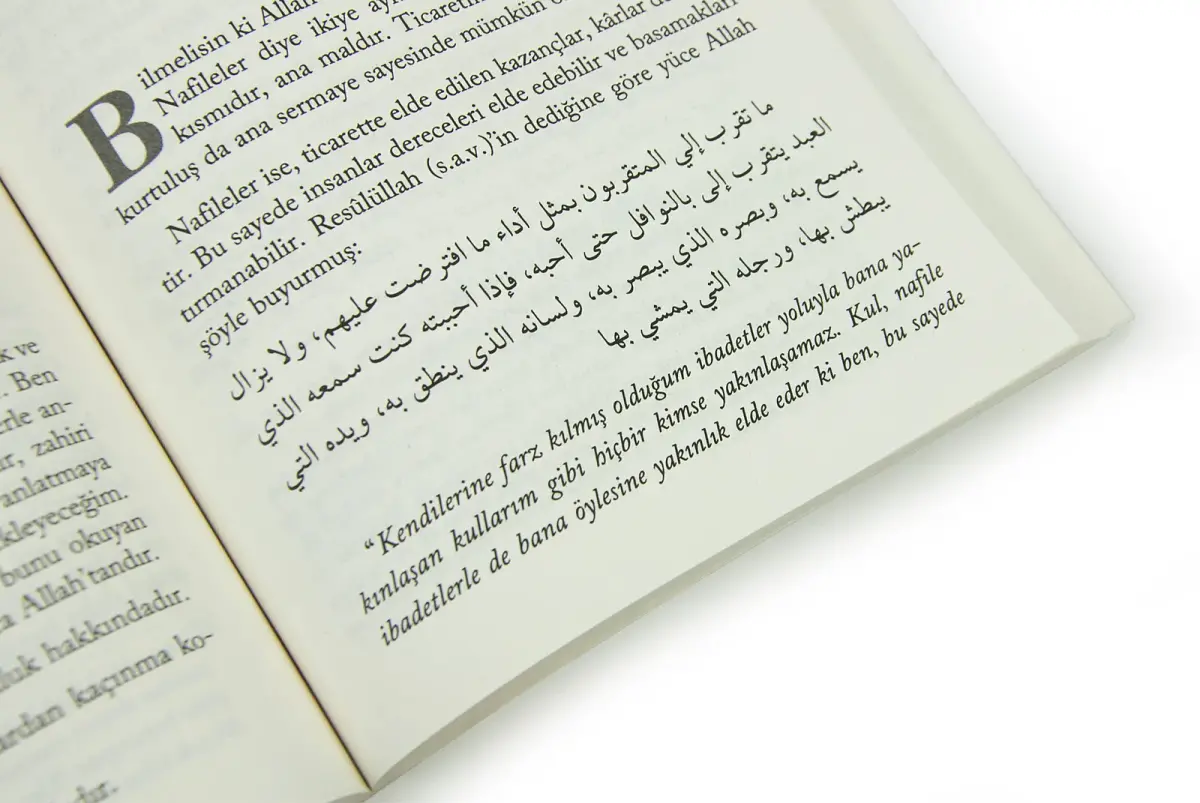 k ve
. Ben
erle an-
ir, zahiri
anlatmaya
kleyeceğim.
bunu okuyan
a Allah'tandır.
luk hakkındadır.
ardan kaçınma ko-
dır.
Bilmelisin ki Allah
Nafileler diye ikiye ay
kısmıdır, ana maldır. Ticaretin
kurtuluş da ana sermaye sayesinde mümkün o
Nafileler ise, ticarette elde edilen kazançlar, kârlar de
tir. Bu sayede insanlar dereceleri elde edebilir ve basamakları
tırmanabilir. Resûlüllah (s.a.v.)'in dediğine göre yüce Allah
şöyle buyurmuş:
ما تقرب إلي المتقربون بمثل أداء ما افترضت عليهم، ولا يزال
العبد يتقرب إلى بالنوافل حتى أحبه، فإذا أحببته كنت سمعه الذي
يسمع به، وبصره الذي يبصر به، ولسانه الذي ينطق به، ويده التي
يبطش بها، ورجله التي يمشي بها
“Kendilerine farz kılmış olduğum ibadetler yoluyla bana ya-
kınlaşan kullarım gibi hiçbir kimse yakınlaşamaz. Kul, nafile
ibadetlerle de bana öylesine yakınlık elde eder ki ben, bu sayede